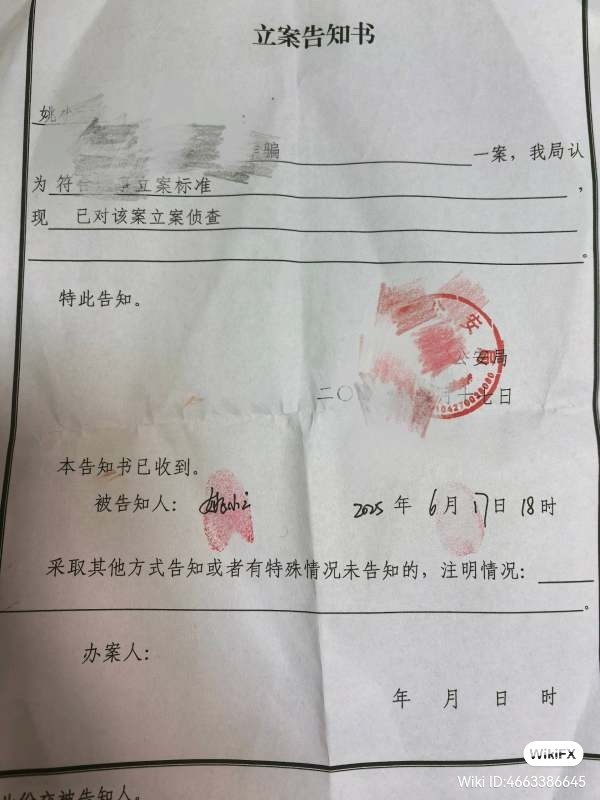 立案告知书
姚小
骗 一案，我局认
为 符 立案标准 ，
现 已对该案立案侦查
。
特此告知。
公安
公安局
二〇 月十七日
本告知书已收到。
被告知人： 2025 年 6 月 17 日 18 时
采取其他方式告知或者有特殊情况未告知的，注明情况：
。
办案人：
年 月 日 时
WikiFX
Wiki ID:4663386645
此份交被告知人。